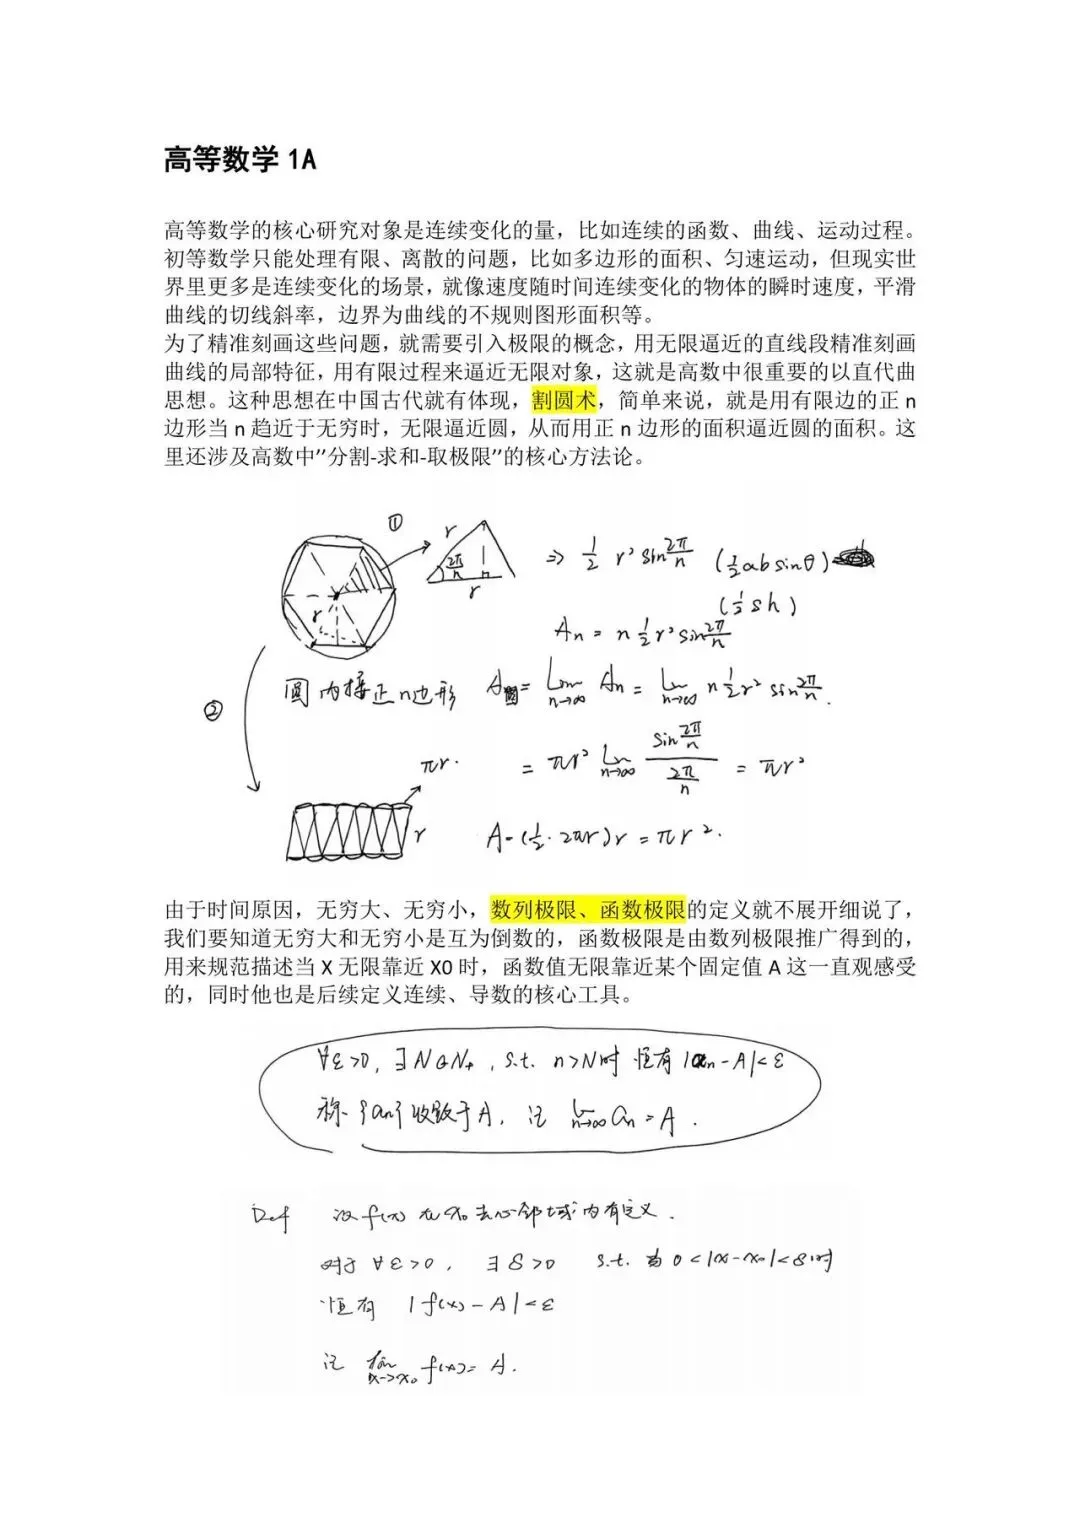 高等数学 1A
高等数学的核心研究对象是连续变化的量，比如连续的函数、曲线、运动过程。
初等数学只能处理有限、离散的问题，比如多边形的面积、匀速运动，但现实世
界里更多是连续变化的场景，就像速度随时间连续变化的物体的瞬时速度，平滑
曲线的切线斜率，边界为曲线的不规则图形面积等。
为了精准刻画这些问题，就需要引入极限的概念，用无限逼近的直线段精准刻画
曲线的局部特征，用有限过程来逼近无限对象，这就是高数中很重要的以直代曲
思想。这种思想在中国古代就有体现，割圆术，简单来说，就是用有限边的正 n
边形当 n 趋近于无穷时，无限逼近圆，从而用正 n 边形的面积逼近圆的面积。这
里还涉及高数中”分割-求和-取极限”的核心方法论。
①
r 2π/n r r
⇒ 1/2 r² sin 2π/n (1/2 ab sinθ)
(1/2 sh)
An = n 1/2 r² sin 2π/n
圆内接正n边形 A圆 = lim n→∞ An = lim n→∞ n 1/2 r² sin 2π/n.
②
= πr² lim n→∞ (sin 2π/n)/(2π/n) = πr²
πr.
r
A=(1/2·2πr)r = πr².
由于时间原因，无穷大、无穷小，数列极限、函数极限的定义就不展开细说了，
我们要知道无穷大和无穷小是互为倒数的，函数极限是由数列极限推广得到的，
用来规范描述当 X 无限靠近 X0 时，函数值无限靠近某个固定值 A 这一直观感受
的，同时他也是后续定义连续、导数的核心工具。
∀ε>0, ∃N∈N₊, s.t. n>N时 恒有 |an-A|<ε
称 {an} 收敛于A, 记 lim n→∞ an = A.
Def 设 f(x) 在 x₀ 去心邻域内有定义.
对于 ∀ε>0, ∃δ>0 s.t. 当 0<|x-x₀|<δ时
恒有 |f(x)-A|<ε
记 lim x→x₀ f(x)= A.